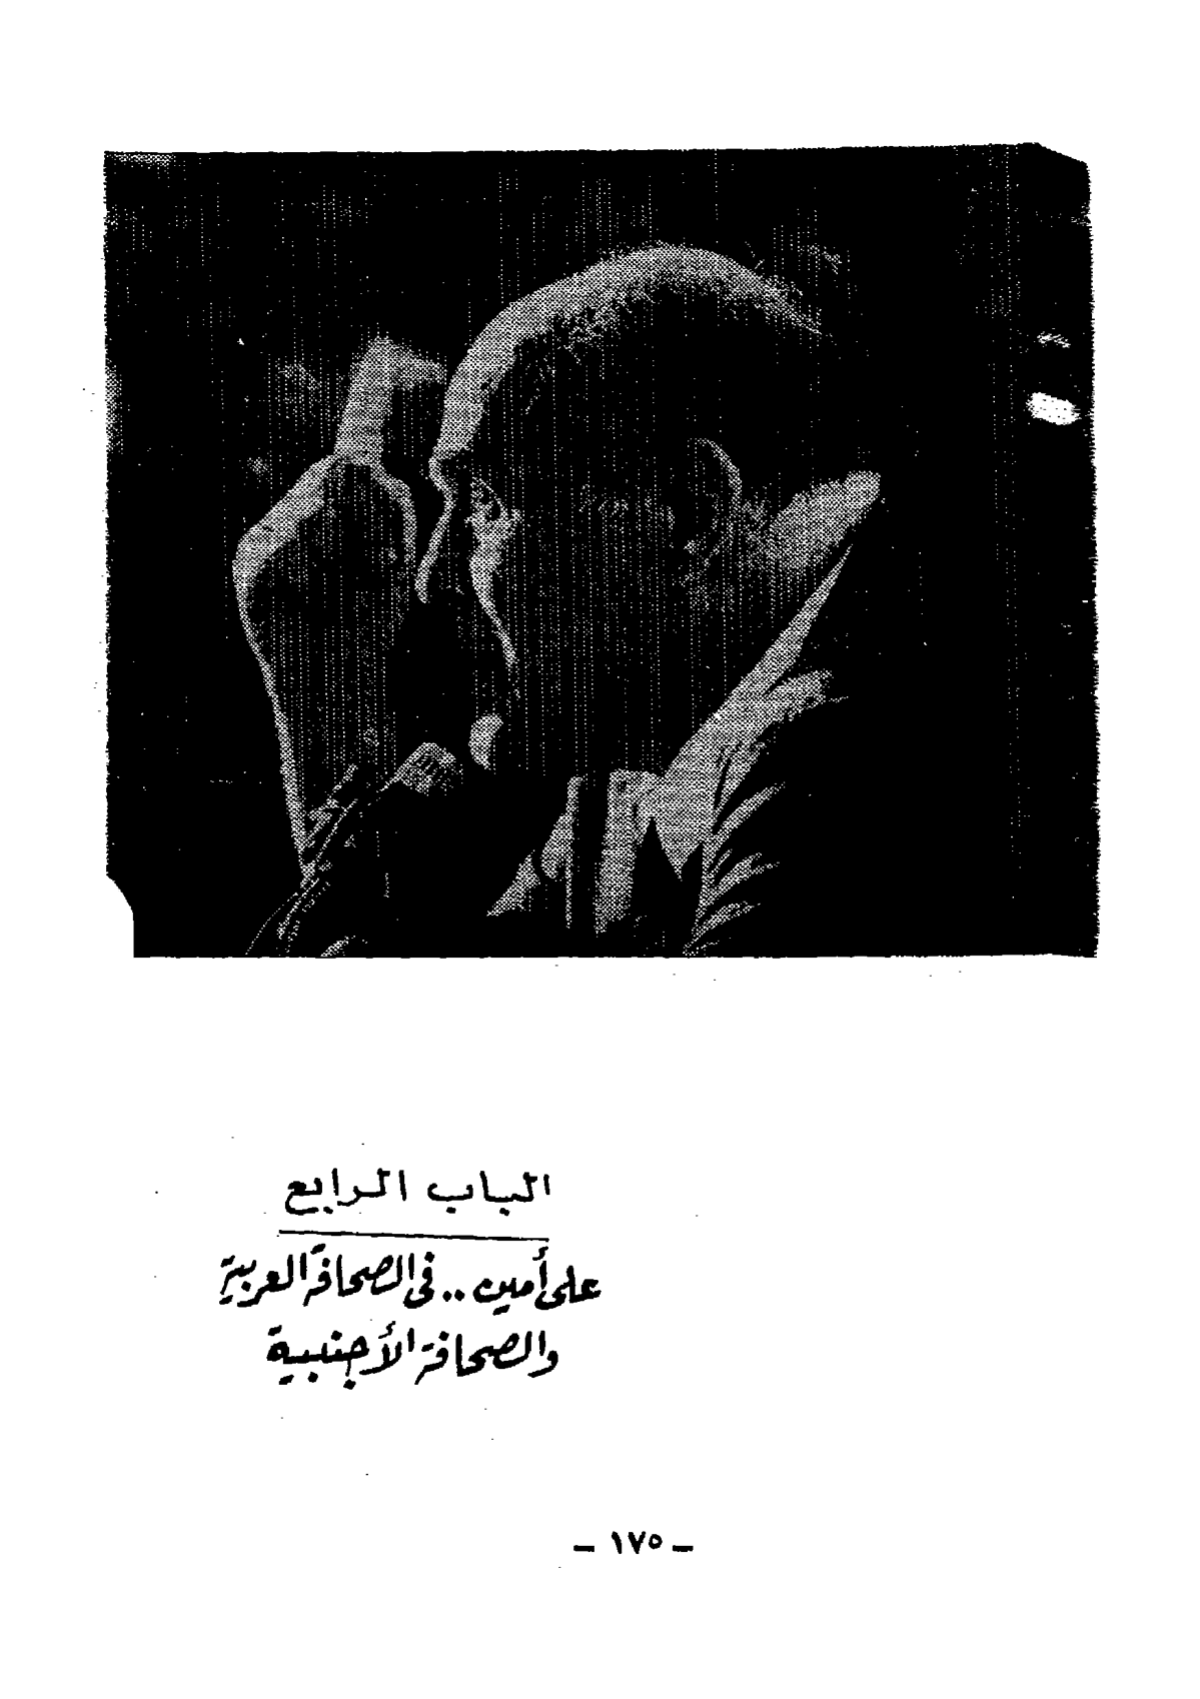 الباب الرابع
على أمين .. فى الصحافة العربية
والصحافة الأجنبية
- ١٧٥ -